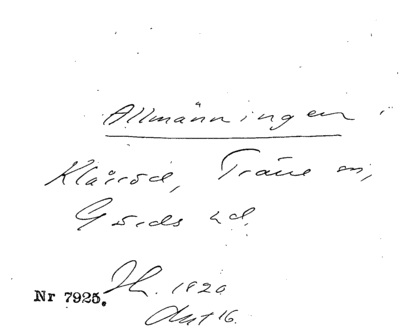 Allmänningen
Klåröd, Träne sn,
Gärds hd.
Nr 7925. 1820
Akt 16.